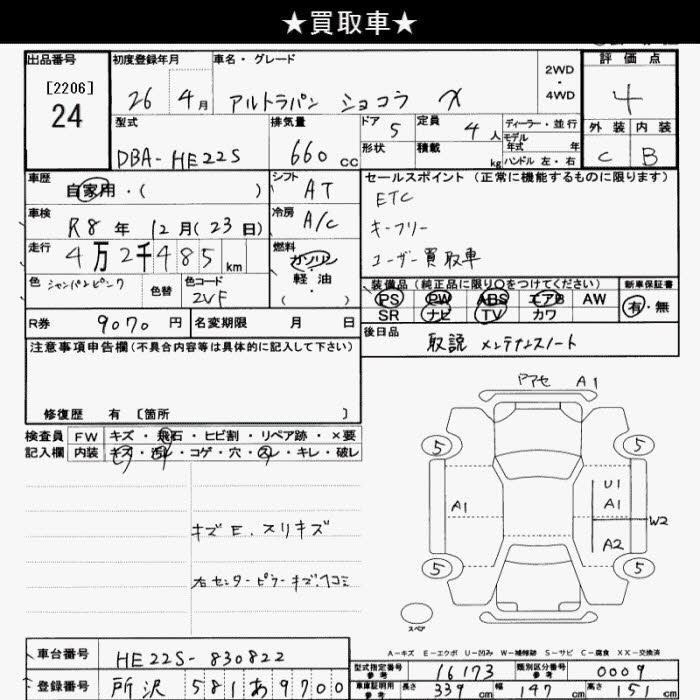 ★買取車★
出品番号
[2206]
24
初度登録年月
26 4月
車名・グレード
アルトラパン ショコラ X
2WD
・
4WD
評価点
4
外装 内装
C B
型式
DBA-HE22S
排気量
660cc
ドア 5
定員 4人
ディーラー・並行
モデル
年式 年
形状
積載 kg
ハンドル 左・右
車歴
自家用・( )
シフト
AT
セールスポイント (正常に機能するものに限ります)
ETC
キーフリー
ユーザー買取車
車検
R8年 12月(23日)
冷房
A/C
走行
4万2千485km
燃料
ガソリン
軽・油
( )
色
シャンパンピンク
色替
色コード
ZVF
装備品(純正品に限り○をつけてください)
PS PW ABS エアB AW
SR ナビ TV カワ
新車保証書
有・無
R券 9070円
名変期限 月 日
後日品
取説 メンテナンスノート
注意事項申告欄(不具合内容等は具体的に記入して下さい)
修復歴 有 [箇所 ]
検査員
記入欄
FW キズ・飛石・ヒビ割・リペア跡・×要
内装 キズ・汚れ・コゲ・穴・スレ・キレ・破レ
キズE.スリキズ
右センターピラーキズ.ヘコミ
ドアセ A1
5 5
A1
U1
A1
W2
A2
5 5
スペア
A-キズ E-エクボ U-凹み W-補修跡 S-サビ C-腐食 XX-交換済
車台番号
HE22S-830822
登録番号
所沢 581 あ 9700
型式指定番号
参考
16173
類別区分番号
参考
0009
車庫証明用
参考
長さ 339cm
幅 147cm
高さ 151cm